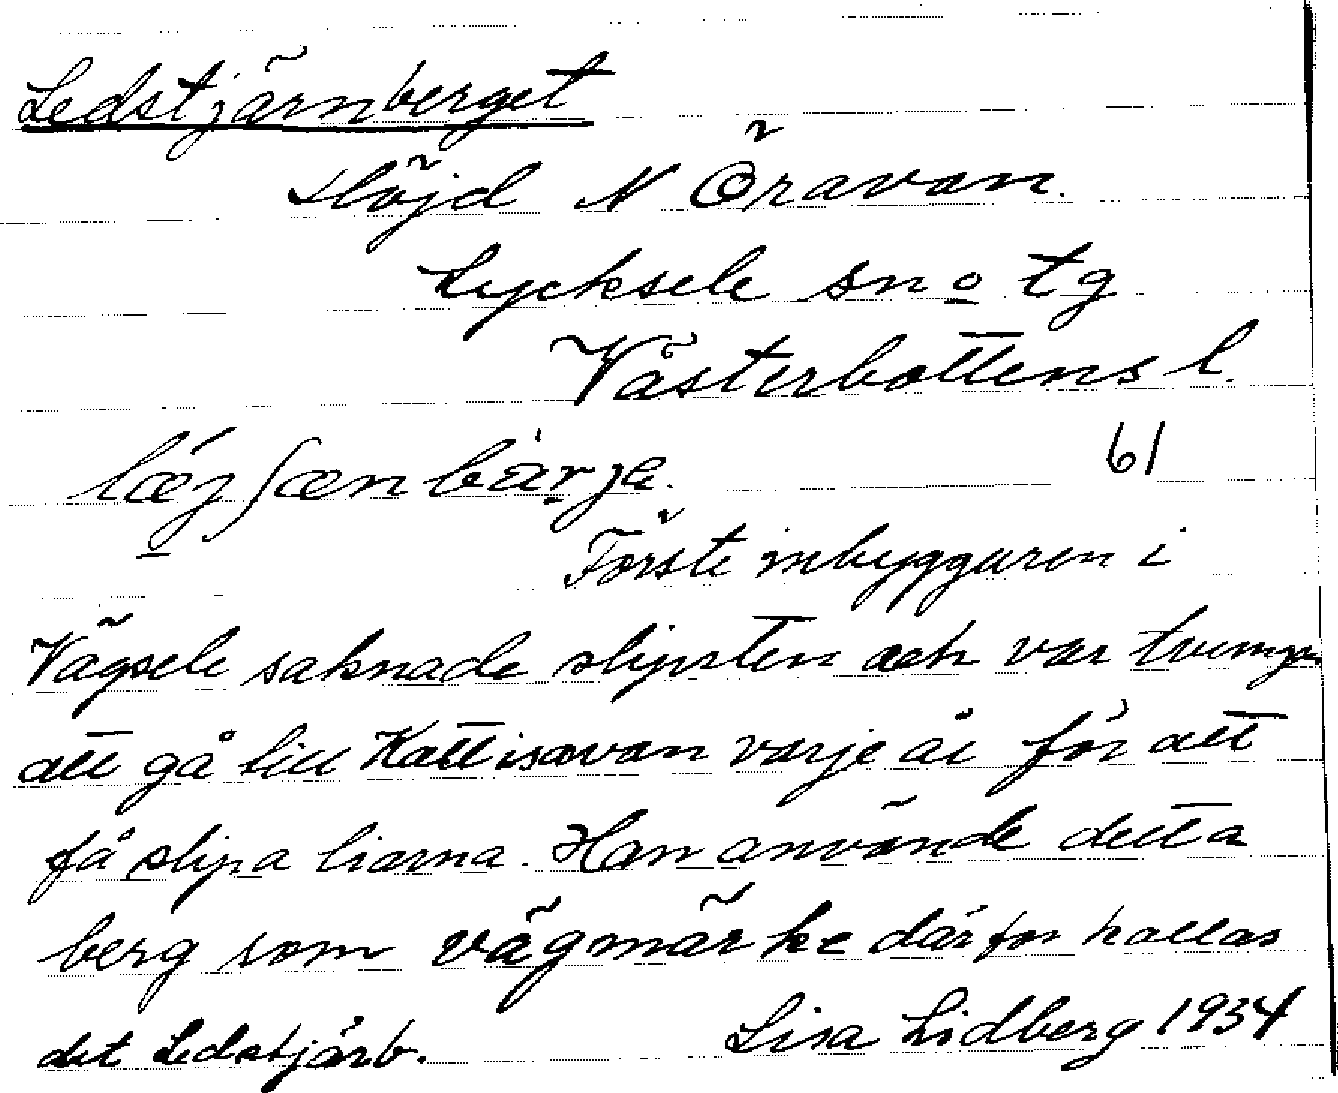 Ledstjärnberget
Höjd N Öravan.
Lycksele sn o tg
Västerbottens l.
61
Förste inbyggaren i
Vägsele saknade slipsten och var tvungen
att gå till Kattisavan varje år för att
få slipa liarna. Han använde detta
berg som vägmärke därför kallas
det Ledstjärb.
Lisa Lidberg 1934